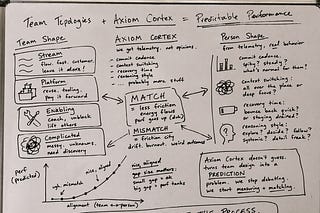 Team Topologies + Axiom Cortex = Predictable Performance
Team Shape
Stream
flow, fast, customer,
leave it alone!
Platform
reuse, tooling,
pay it forward
Enabling
coach, unblock
lift others
Complicated
messy, unknowns,
need discovery
AXIOM CORTEX
we get telemetry, not opinions.
- commit cadence
- context switching
- recovery time
- reasoning style
- probably more stuff
MATCH
= less friction
energy flows
perf goes up (duh)
MISMATCH
= friction city
drift, burnout, weird outcomes
Person Shape
from telemetry, real behavior
commit cadence:
steady?
what's normal for them?
context switching:
all over the place
or deep focus?
recovery time:
bounce back quick?
or staying dazed?
reasoning style:
explore? decide? follow?
systemic? detail freak?
perf
(predicted)
mismatch
aligned
gap size matters:
small gap = ok
big gap = perf tanks
alignment (team <-> person)
Axiom Cortex doesn't guess.
turns team design into a
PREDICTION
problem. we stop debating.
we start measuring & matching.
PROCESS